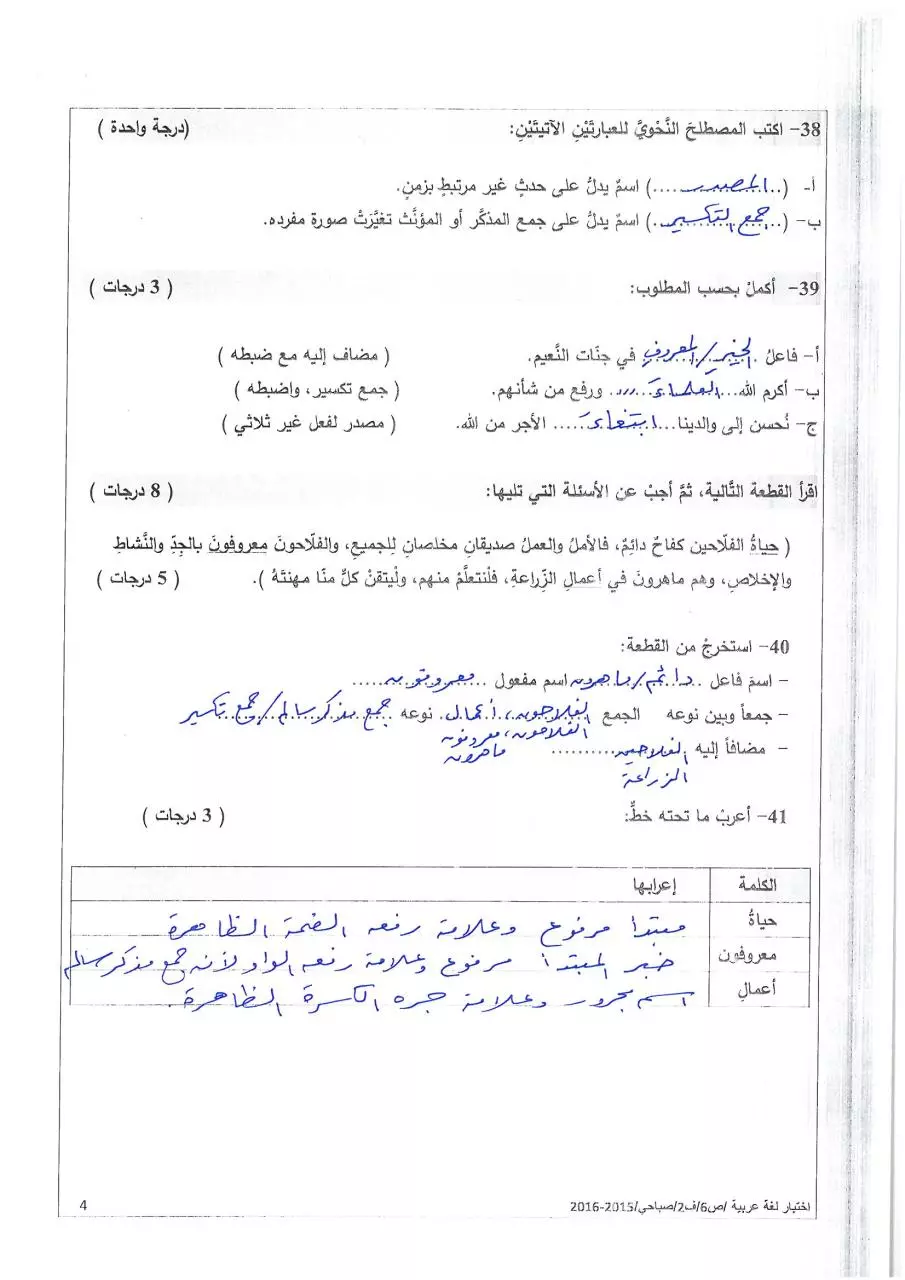 38- اكتب المصطلحَ النَّحْويَّ للعبارتَيْنِ الآتيتَيْنِ: (درجة واحدة )
أ- (..المصدر....) اسمٌ يدلُّ على حدثٍ غير مرتبطٍ بزمنٍ.
ب- (..جمع التكسير..) اسمٌ يدلُّ على جمع المذكَّر أو المؤنَّث تغيَّرَتْ صورة مفرده.
39- أكملْ بحسب المطلوب: ( 3 درجات )
أ- فاعلُ .الخيرِ/المعروفِ في جنّات النَّعيم. ( مضاف إليه مع ضبطه )
ب- أكرم الله...العلماءَ.... ورفع من شأنهم. ( جمع تكسير، واضبطه )
ج- نُحسن إلى والدينا...ابتغاءَ..... الأجر من الله. ( مصدر لفعل غير ثلاثي )
اقرأ القطعة التَّالية، ثمَّ أجبْ عن الأسئلة التي تليها: ( 8 درجات )
( حياةُ الفلّاحين كفاحٌ دائمٌ، فالأملُ والعملُ صديقانِ مخلصانِ لِلجميعِ، والفلّاحونَ معروفونَ بالجِدِّ والنَّشاطِ
والإخلاصِ، وهم ماهرونَ في أعمالِ الزِّراعةِ، فلْنتعلَّمْ منهم، ولْيتقنْ كلٌّ منّا مهنتَهُ ). ( 5 درجات )
40- استخرجْ من القطعة:
- اسمَ فاعل ..دائم/ماهرون اسم مفعول ..معروفون.....
- جمعاً وبين نوعه الجمع الفلاحون، أعمال. نوعه جمع مذكر سالم/جمع تكسير
الفلاحون، معرفون
- مضافاً إليه الفلاحين.......... ماهرون
الزراعة
41- أعربْ ما تحته خطٌّ: ( 3 درجات )
الكلمة إعرابها
حياةُ مبتدا مرفوع وعلامة رفعه الضمة الظاهرة
معروفون خبر المبتدا مرفوع وعلامة رفعه الواو لأنه جمع مذكر سالم
أعمالِ اسم مجرور وعلامة جره الكسرة الظاهرة.
اختبار لغة عربية /ص6/ف2/صباحي/2015-2016 4